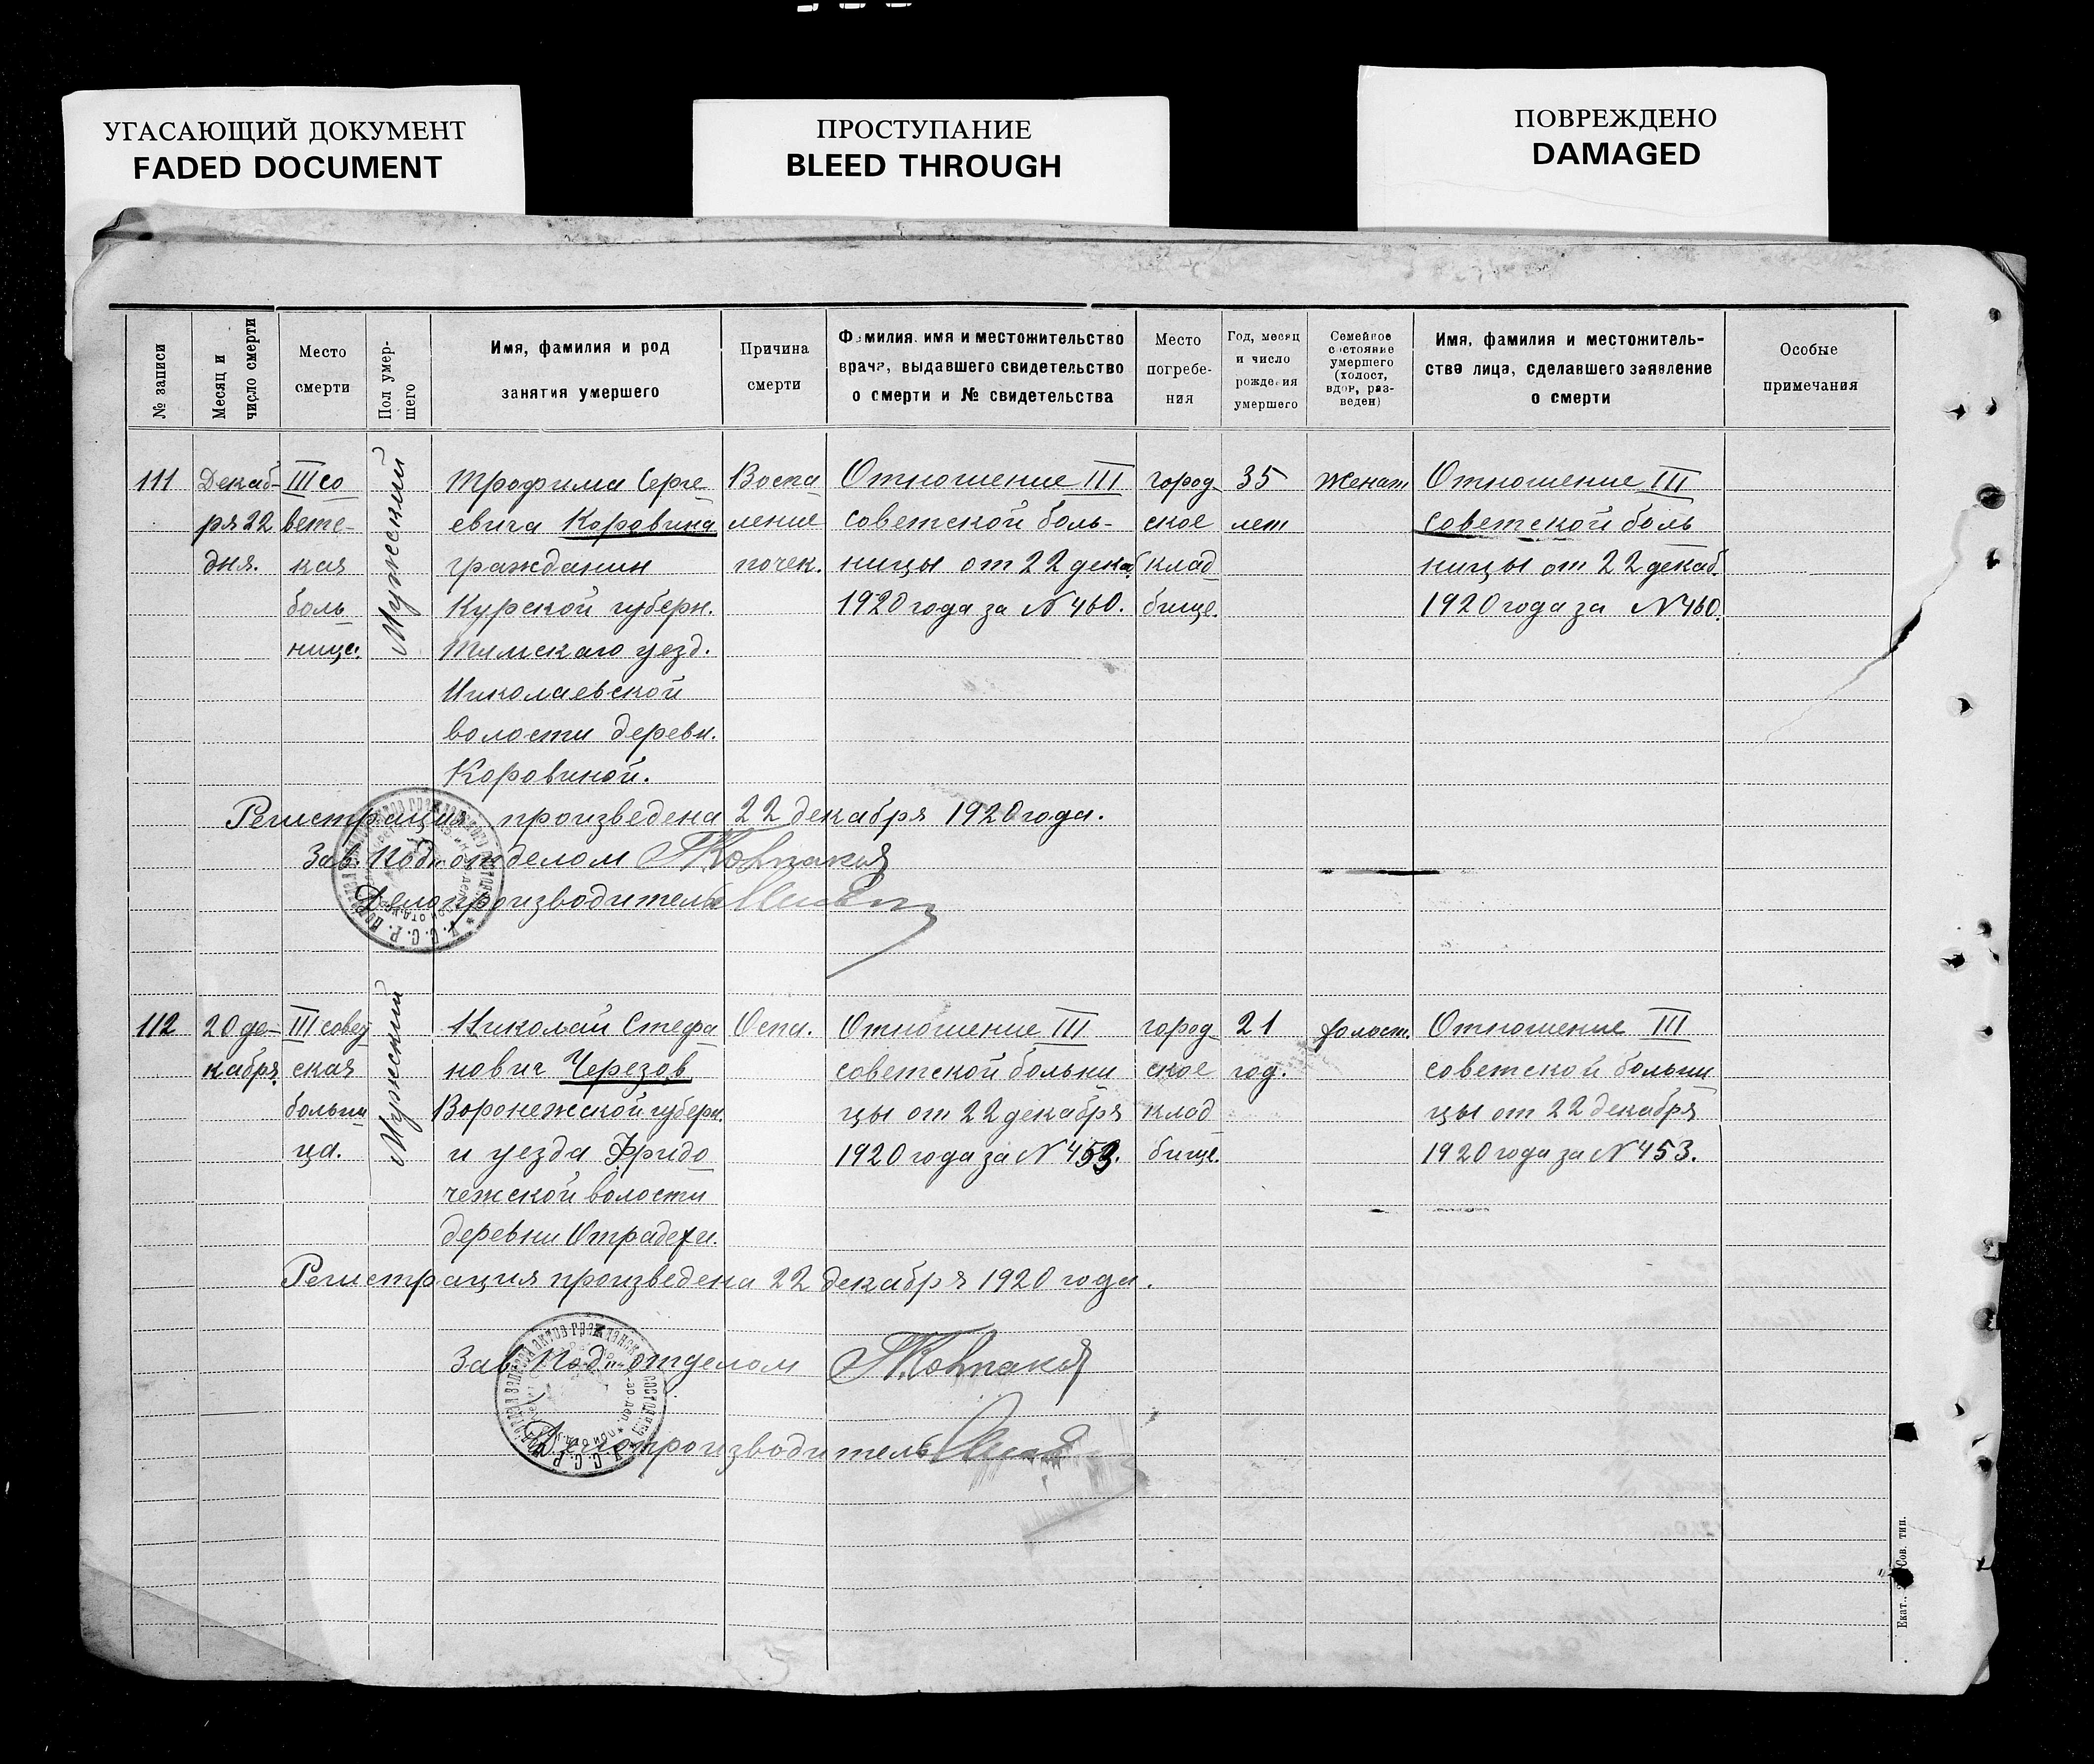 УГАСАЮЩИЙ ДОКУМЕНТ
FADED DOCUMENT
ПРОСТУПАНИЕ
BLEED THROUGH
ПОВРЕЖДЕНО
DAMAGED
№ записи
Месяц и
число смерти
Место
смерти
Пол умер-
шего
Имя, фамилия и род
занятия умершего
Причина
смерти
Фамилия, имя и местожительство
врача, выдавшего свидетельство
о смерти и № свидетельства
Место
погребе-
ния
Год, месяц
и число
рождения
умершего
Семейное
состояние
умершего
(холост,
вдов, раз-
веден)
Имя, фамилия и местожитель-
ство лица, сделавшего заявление
о смерти
Особые
примечания
111
Декаб-
ря 22
дня.
III со
ветс-
кая
боль
нице.
Мужеский
Трофима Серге
евича Коровина
гражданин
Курской губерн.
Тимскаго уезд.
Николаевской
волости деревн.
Коровиной.
Воспа
ление
почек.
Отношение III
советской боль-
ницы от 22 декаб.
1920 года за N 460.
город
ское
клад
бище.
35
лет
Женат
Отношение III
советской боль
ницы от 22 декаб.
1920 года за N 460.
Регистрация произведена 22 декабря 1920 года.
Зав. Под-отделом
Делопроизводитель
112
20 де-
кабря.
III совет
ская
больни
ца.
Мужеский
Николай Стефа
нович Черезов
Воронежской губерн.
и уезда
чежской волости
деревни
Оспа.
Отношение III
советской больни
цы от 22 декабря
1920 года за N 453.
город
ское
клад
бище.
21
год.
холост.
Отношение III
советской больни
цы от 22 декабря
1920 года за N 453.
Регистрация произведена 22 декабря 1920 года.
Зав. Под-отделом
Делопроизводитель
Сов. тип.